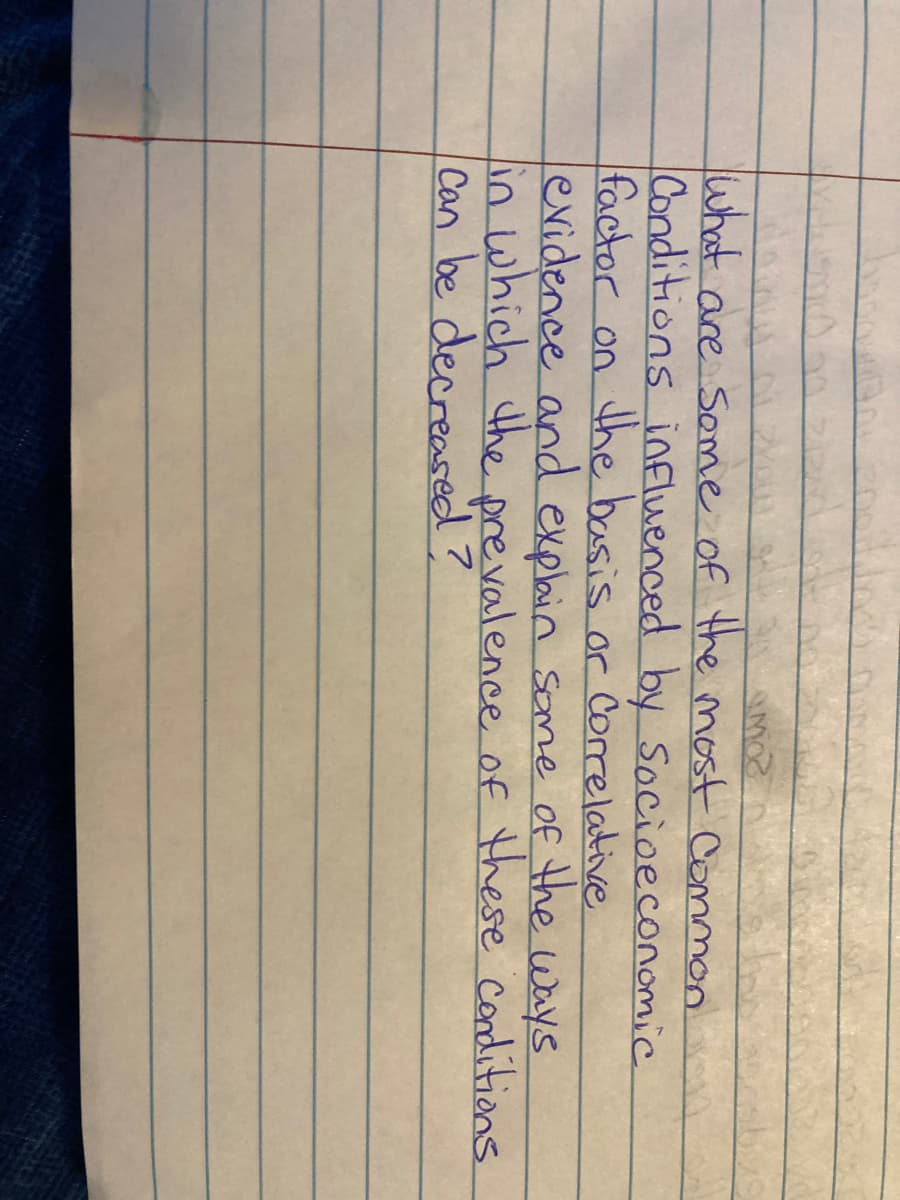 What are some of the most Common
Conditions influenced by Socioeconomic
factor on the basis or Correlative
evidence and explain some of the ways
in which the prevalence of these conditions
can be decreased?